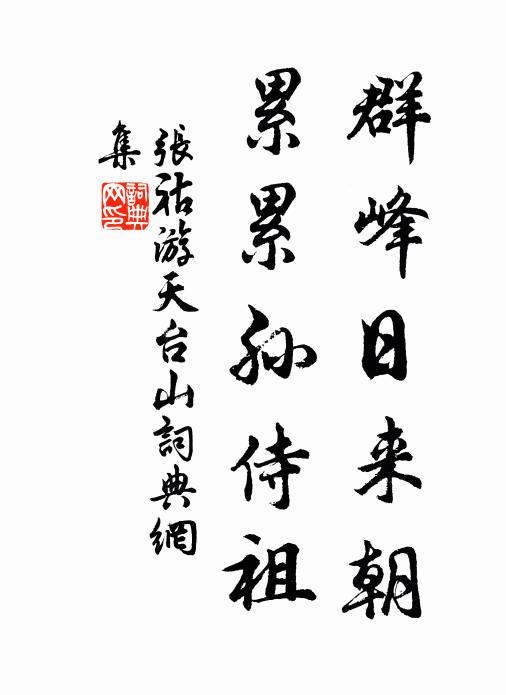 群峰日来朝
累累孙侍祖
張祜游天台山詞典網
集
詞典网印